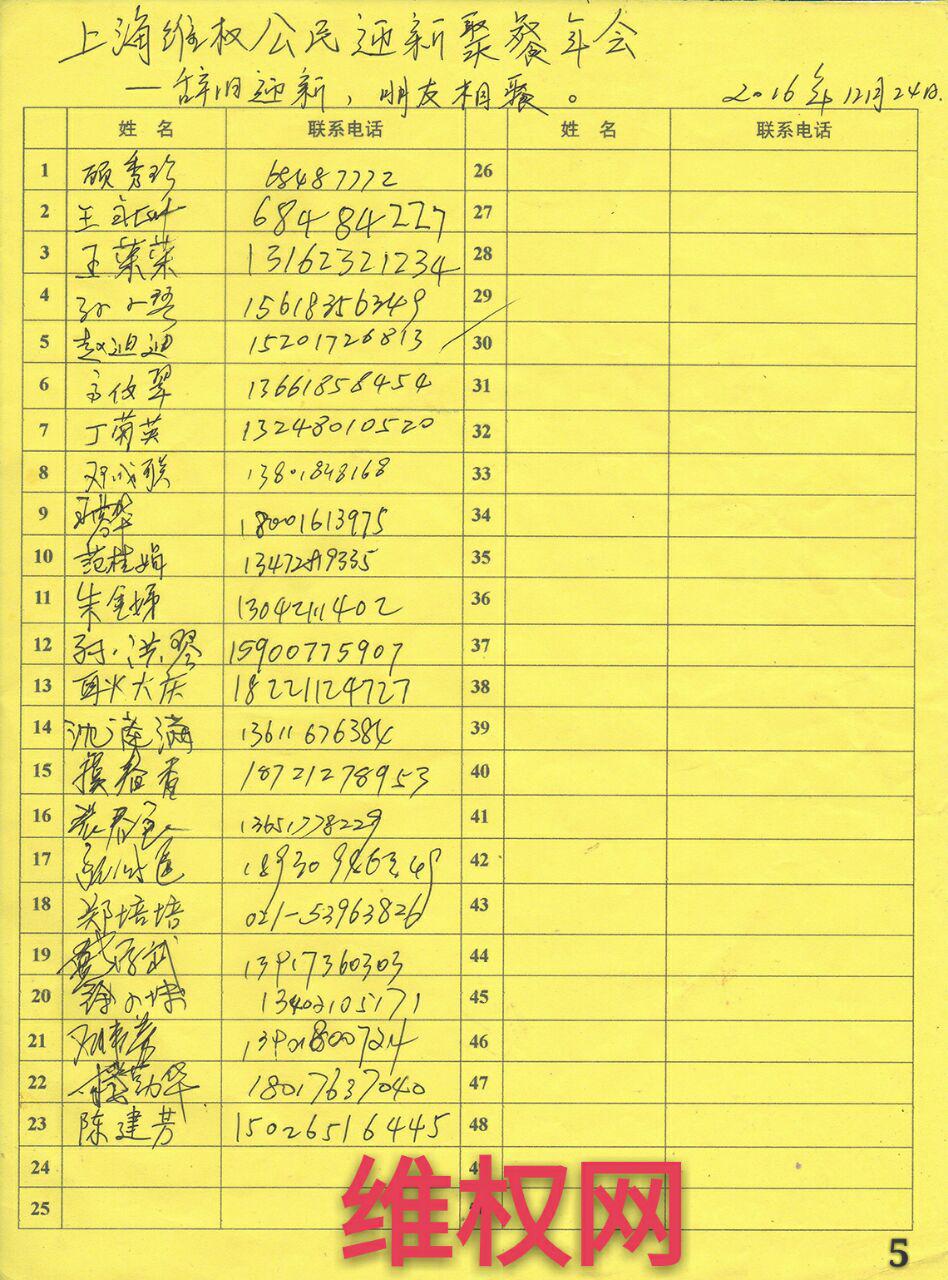 上海维权公民迎新聚餐年会
—辞旧迎新，朋友相聚。 2016年12月24日.
姓 名 联系电话 姓 名 联系电话
1 顾秀珍 68487772 26
2 王 68484227 27
3 王荣荣 13162321234 28
4 孙小琴 15618356349 29
5 赵迪迪 15201726813 30
6 方俊翠 13661858454 31
7 丁菊英 13248010520 32
8 邓成联 13801848168 33
9 18001613975 34
10 范桂娟 35
11 朱金娣 13042111402 36
12 孙洪琴 15900775907 37
13 大庆 18221124727 38
14 沈 满 13611676384 39
15 18721278953 40
16 13651778229 41
17 18930946349 42
18 郑培培 021-53963826 43
19 13917360303 44
20 徐 13402105171 45
21 13901800724 46
22 华 18017637040 47
23 陈建芳 15026516445 48
24
25
维权网
5